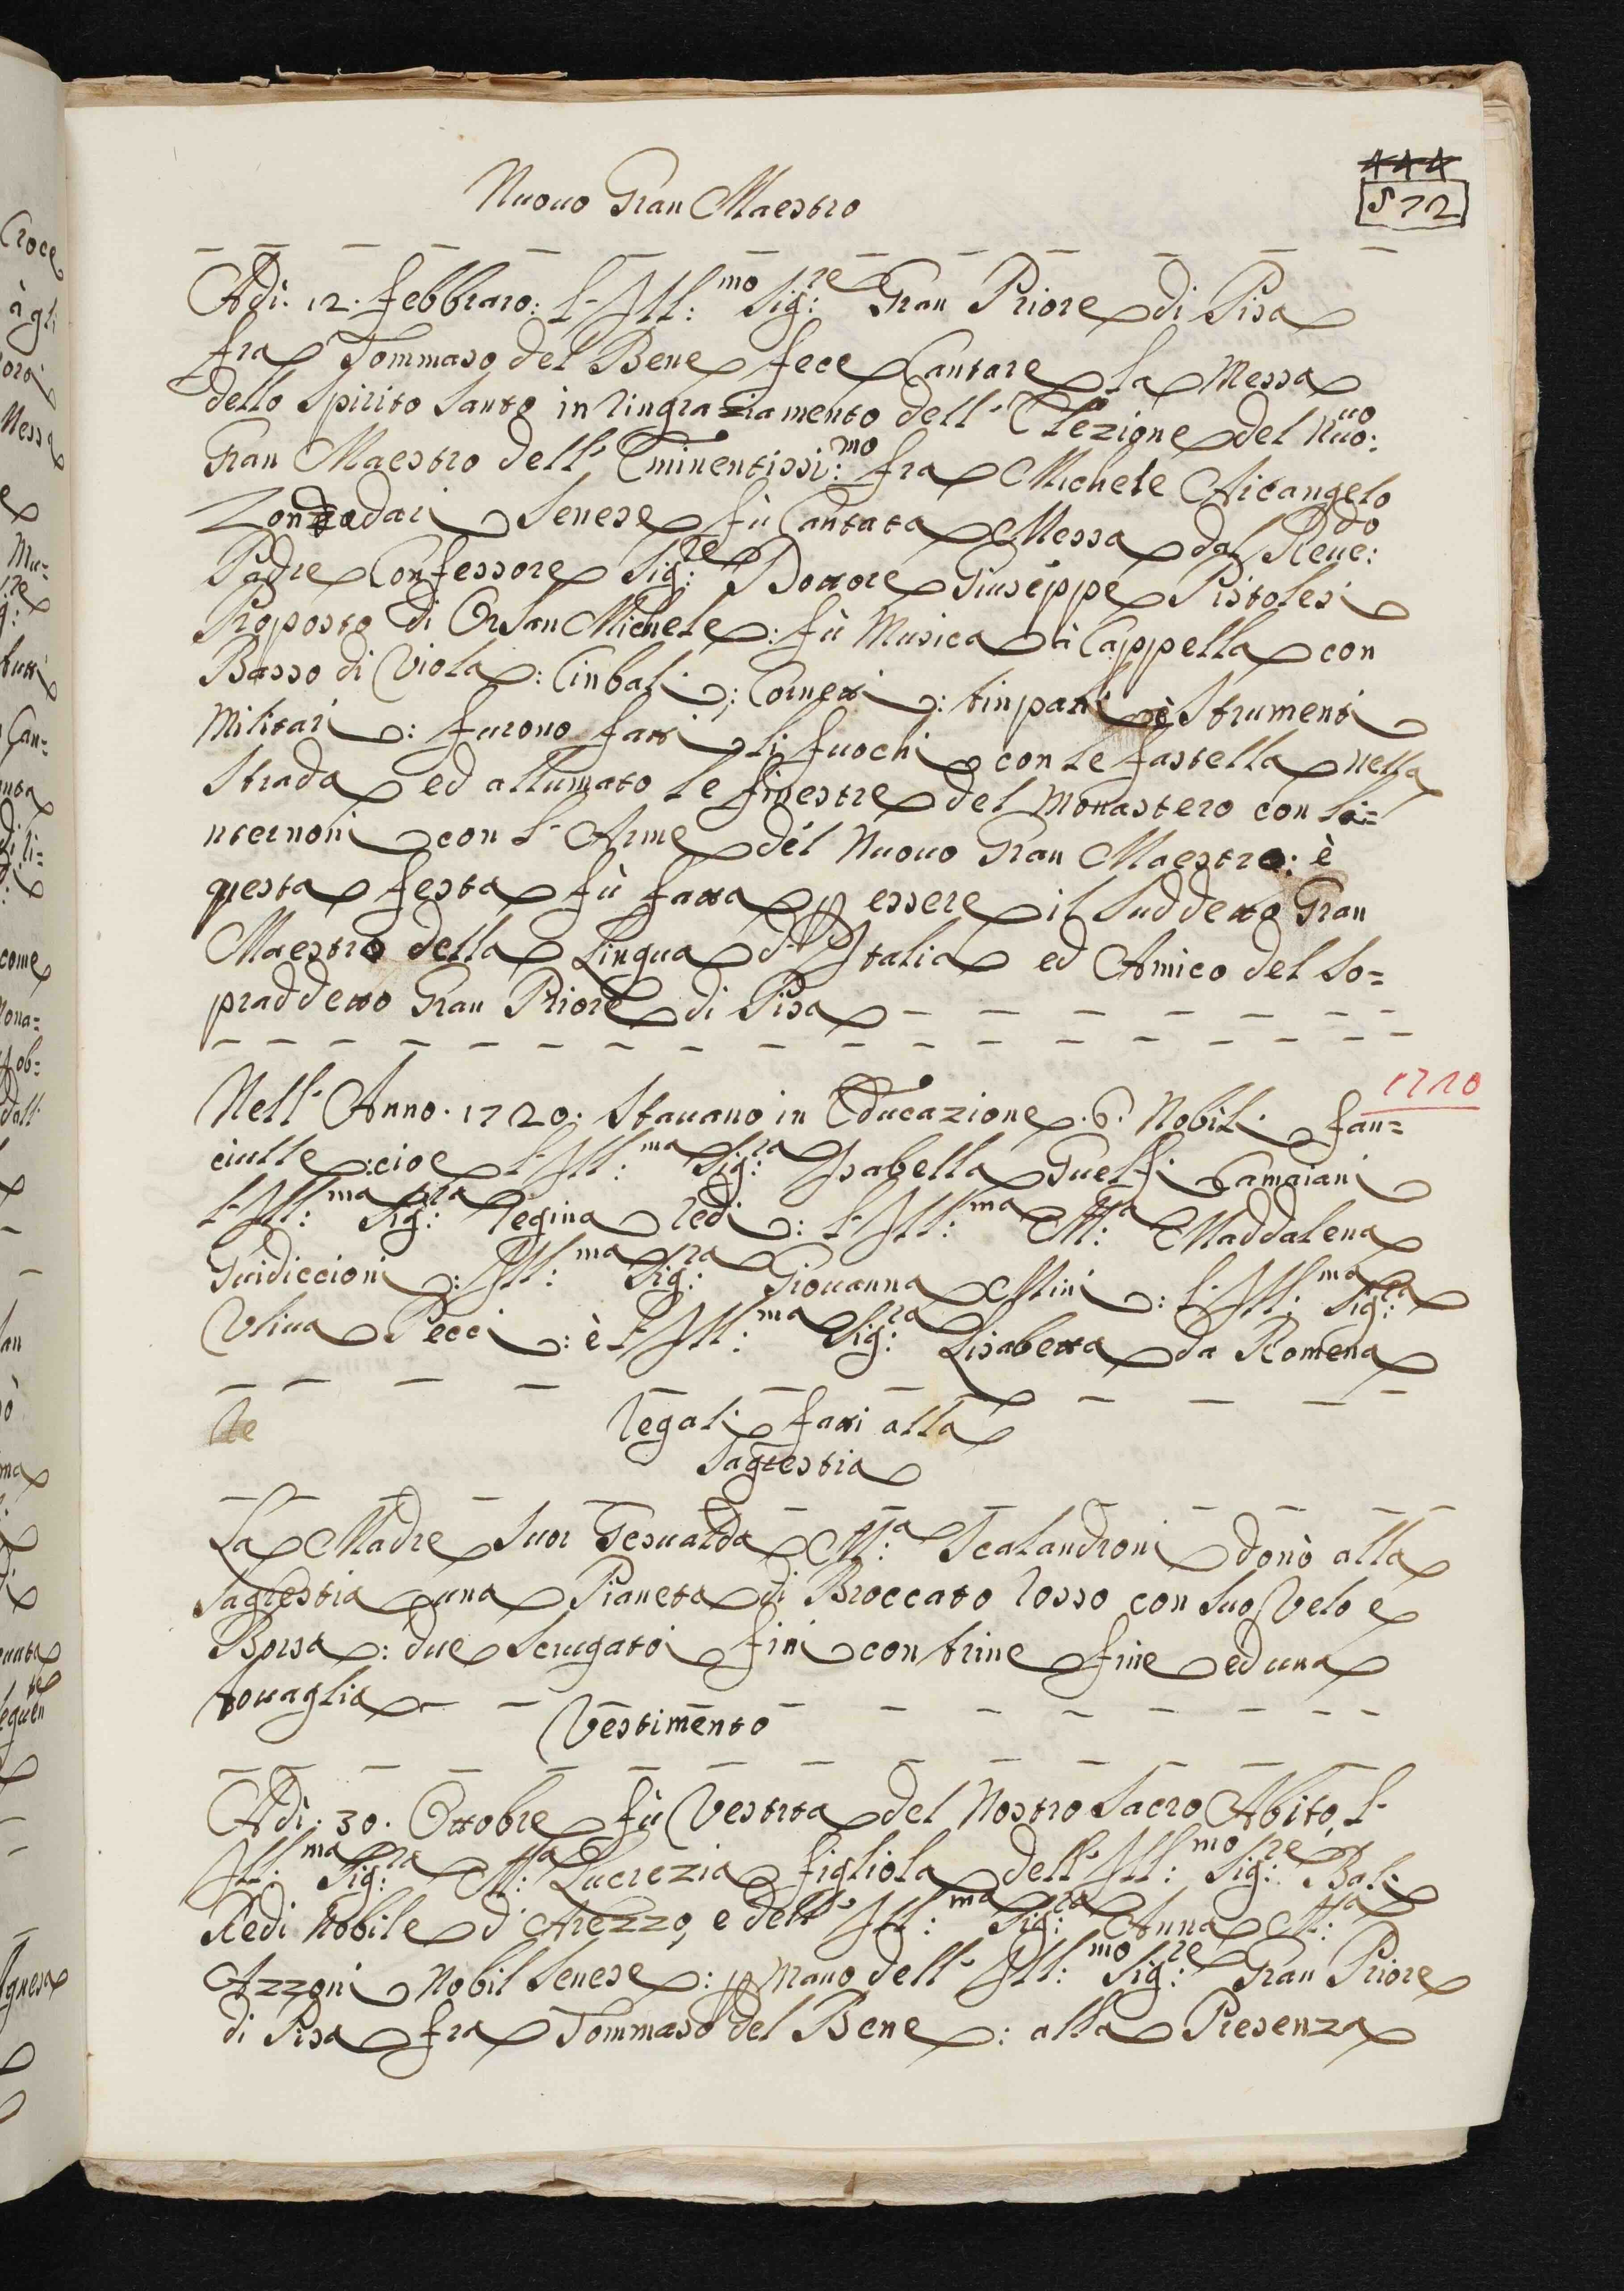 444
572
Nuouo Gran Maestro
Adì: 12. Febbraro: l' Ill:mo Sig:re Gran Priore di Pisa
fra Tommaso del Bene fece Cantare la Messa
dello Spirito Santo in ringraziamento dell' Elezione del nuo:uo
Gran Maestro dell' Eminentissi:mo fra Michele Arcangelo
Zondadari Senese fù Cantata Messa dal Reue:do
Padre Confessore Sig:re Dottore Giuseppe Pistolesi
Proposto di Or San Michele: fù Musica à Cappella con
Basso di Viola: Cinbali; Cornetti: tinpani è Strumenti
Militari: furono fatti li fuochi con le fastella nella
Strada ed allumato le finestre del Monastero con la=
nternoni con l' Arme del Nuouo Gran Maestro: è
questa festa fù fatta p essere il Suddetto Gran
Maestro della Lingua d' Italia ed Amico del So=
praddetto Gran Priore di Pisa
1720
Nell' Anno. 1720. Stauano in Educazione .6. Nobili fan=
ciulle: cioe l' Ill:ma Sig:ra Isabella Guelfi Camaiani
l' Ill:ma Sig:ra Regina Redi: l' Ill:ma M:a Maddalena
Guidiccioni: Ill:ma Sig:ra Giouanna Mini: l' Ill:ma Sig:ra
Uliua Pecci: è l' Ill:ma Sig:ra Lisabetta da Romena
Re
Regali fatti alla
Sagrestia
La Madre Suor Gesualda M:a Scalandroni donò alla
Sagrestia una Pianeta di Broccato rosso con Suo Velo e
Borsa: due Sciugatoi fini con trine fine ed una
touaglia
Vestimento
Adì: 30. Ottobre fù Vestita del Nostro Sacro Abito, l'
Ill:ma Sig:ra M:a Lucrezia figliola dell' Ill:mo Sig:re Bali
Redi Nobile d' Arezzo, e dell' Ill:ma Sig:ra Anna M:a
Azzoni Nobil Senese: p mano dell' Ill:mo Sig:re Gran Priore
di Pisa fra Tommaso del Bene: alla Presenza